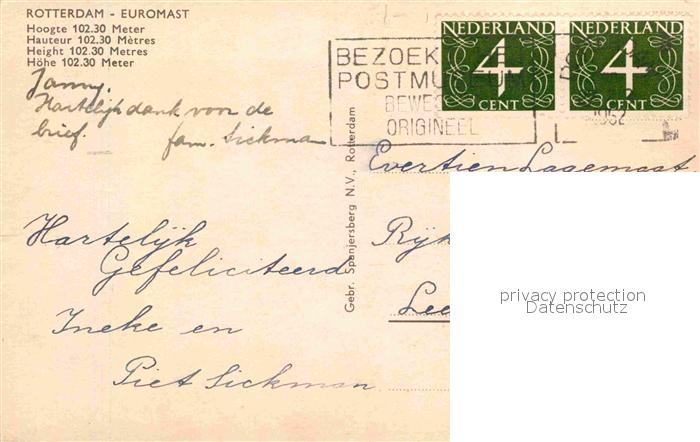 ROTTERDAM - EUROMAST
Hoogte 102.30 Meter
Hauteur 102.30 Mètres
Height 102.30 Metres
Höhe 102.30 Meter
Janny.
Hartelijk dank voor de
brief. fam. Sickman
NEDERLAND
4
CENT
NEDERLAND
4
CENT
BEZOEK
POSTMU
ORIGINEEL
1962
Gebr. Spanjersberg N.V., Rotterdam
Evertien Lagemaat
Hartelijk
Gefeliciteerd
Ineke en
Piet Sickman
Rijk
Lee
privacy protection
Datenschutz